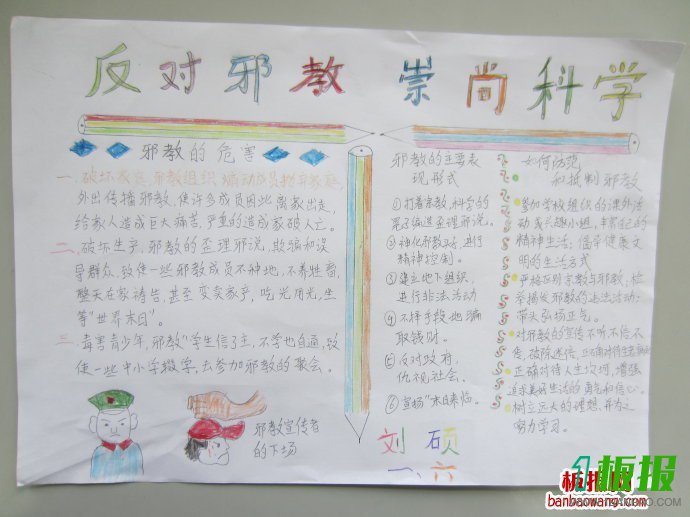 反对邪教 崇尚科学
邪教的危害
一、破坏家庭,邪教组织,煽动成员抛弃家庭,
外出传播邪教,使许多成员因此离家出走,
给家人造成巨大痛苦,严重的造成家破人亡。
二、破坏生产,邪教的歪理邪说,欺骗和误
导群众,致使一些邪教成员不种地,不养牲畜,
整天在家祷告,甚至变卖家产,吃光用光,坐
等"世界末日"。
三、毒害青少年,邪教"学生信了主,不学也自通,致
使一些中小学辍学,去参加邪教的聚会。
邪教宣传者
的下场
邪教的主要表
现形式
①打着宗教,科学的
编造歪理邪说。
②神化邪教,进行
精神控制。
③建立地下组织,
进行非法活动
④不择手段地骗
取钱财。
⑤反对政府,
仇视社会。
⑥宣扬"末日来临。
刘硕
一、六
如何防范
和抵制邪教
参加学校组织的课外活
动或兴趣小组,丰富自己的
精神生活;倡导健康文
明的生活方式
严格区别宗教与邪教,检
举揭发邪教的违法活动;
带头弘扬正气。
对邪教的宣传不听不信不
传,破除迷信,正确对待生老病死
正确对待人生坎坷,增强
追求美好生活的勇气和信心。
树立远大的理想,并为之
努力学习。
板报网
banbaowang.com
板报